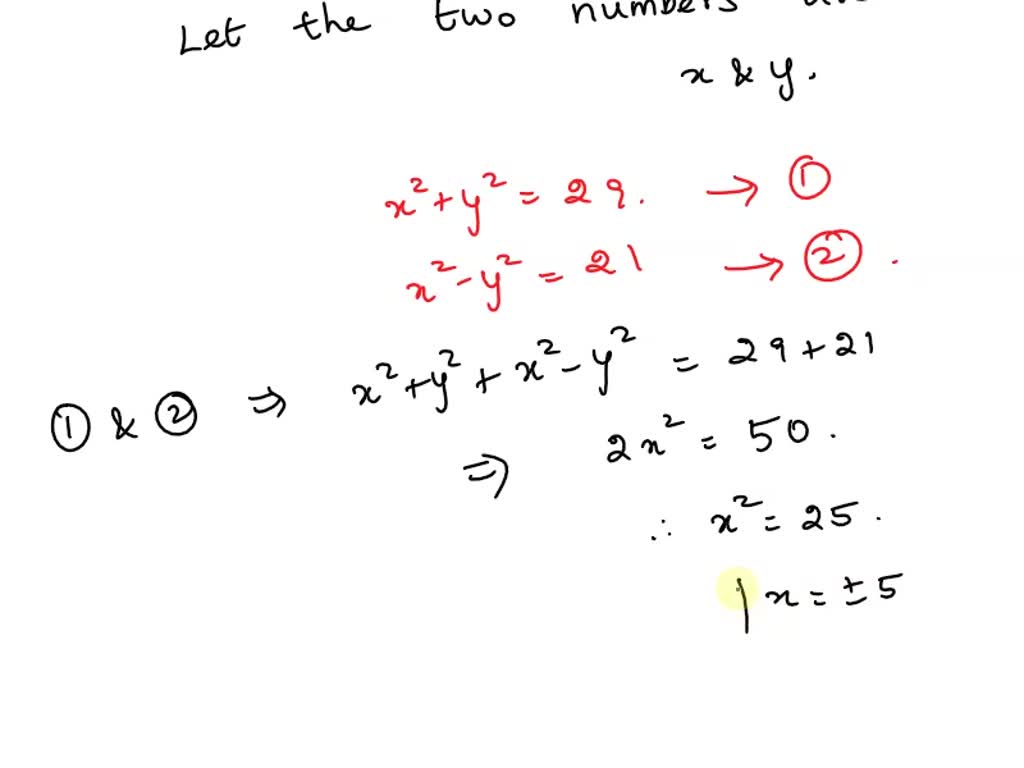 Let the two numbers
x & y.
x²+y² = 29. → ①
x²-y² = 21 → ② .
① & ② ⇒ x²+y²+x²-y² = 29+21
⇒ 2x² = 50.
∴ x² = 25.
x = ±5